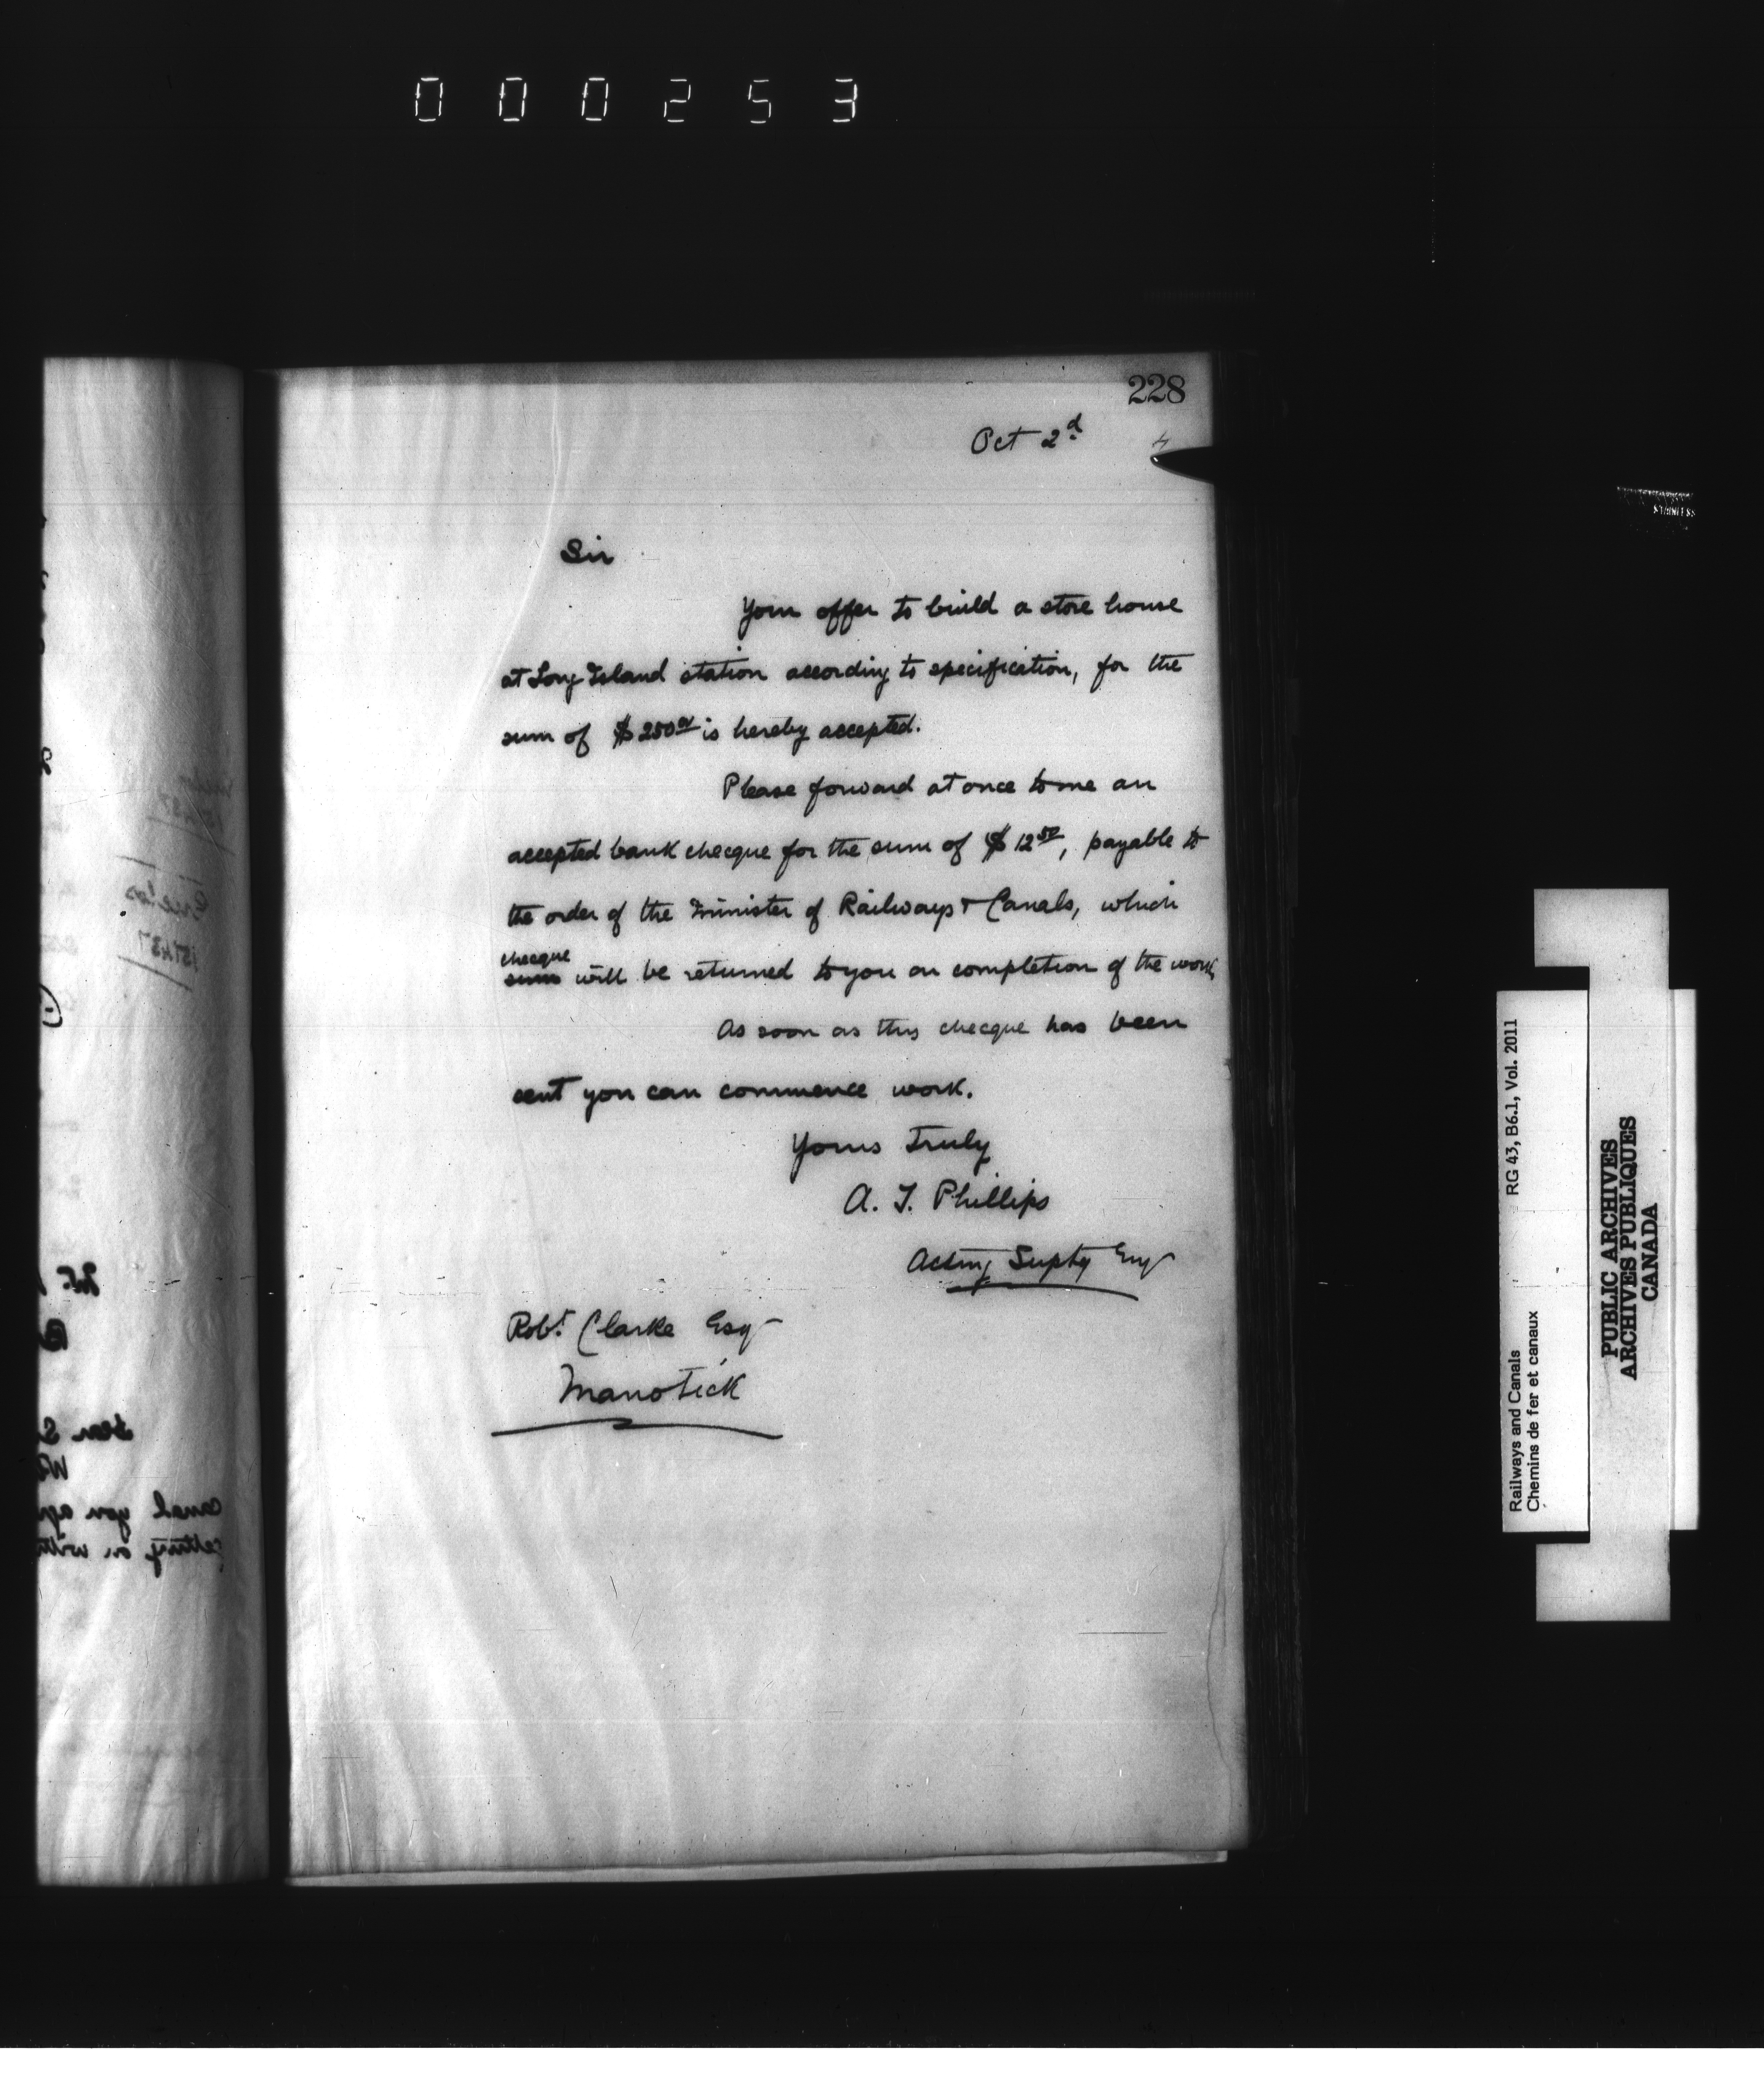 000253
228
Oct 2d
4
Sir
Your offer to build a store house
at Long Island station according to specification, for the
sum of $250.00 is hereby accepted.
Please forward at once to me an
accepted bank checque for the sum of $12.50, payable to
the order of the Minister of Railways & Canals, which
checque
sum will be returned to you on completion of the work,
As soon as this checque has been
sent you can commence work.
Yours truly
A. T. Phillips
Acting Suptg Eng
Robt. Clarke Esq
Manotick
Railways and Canals RG 43, B6.1, Vol. 2011
Chemins de fer et canaux
PUBLIC ARCHIVES
ARCHIVES PUBLIQUES
CANADA